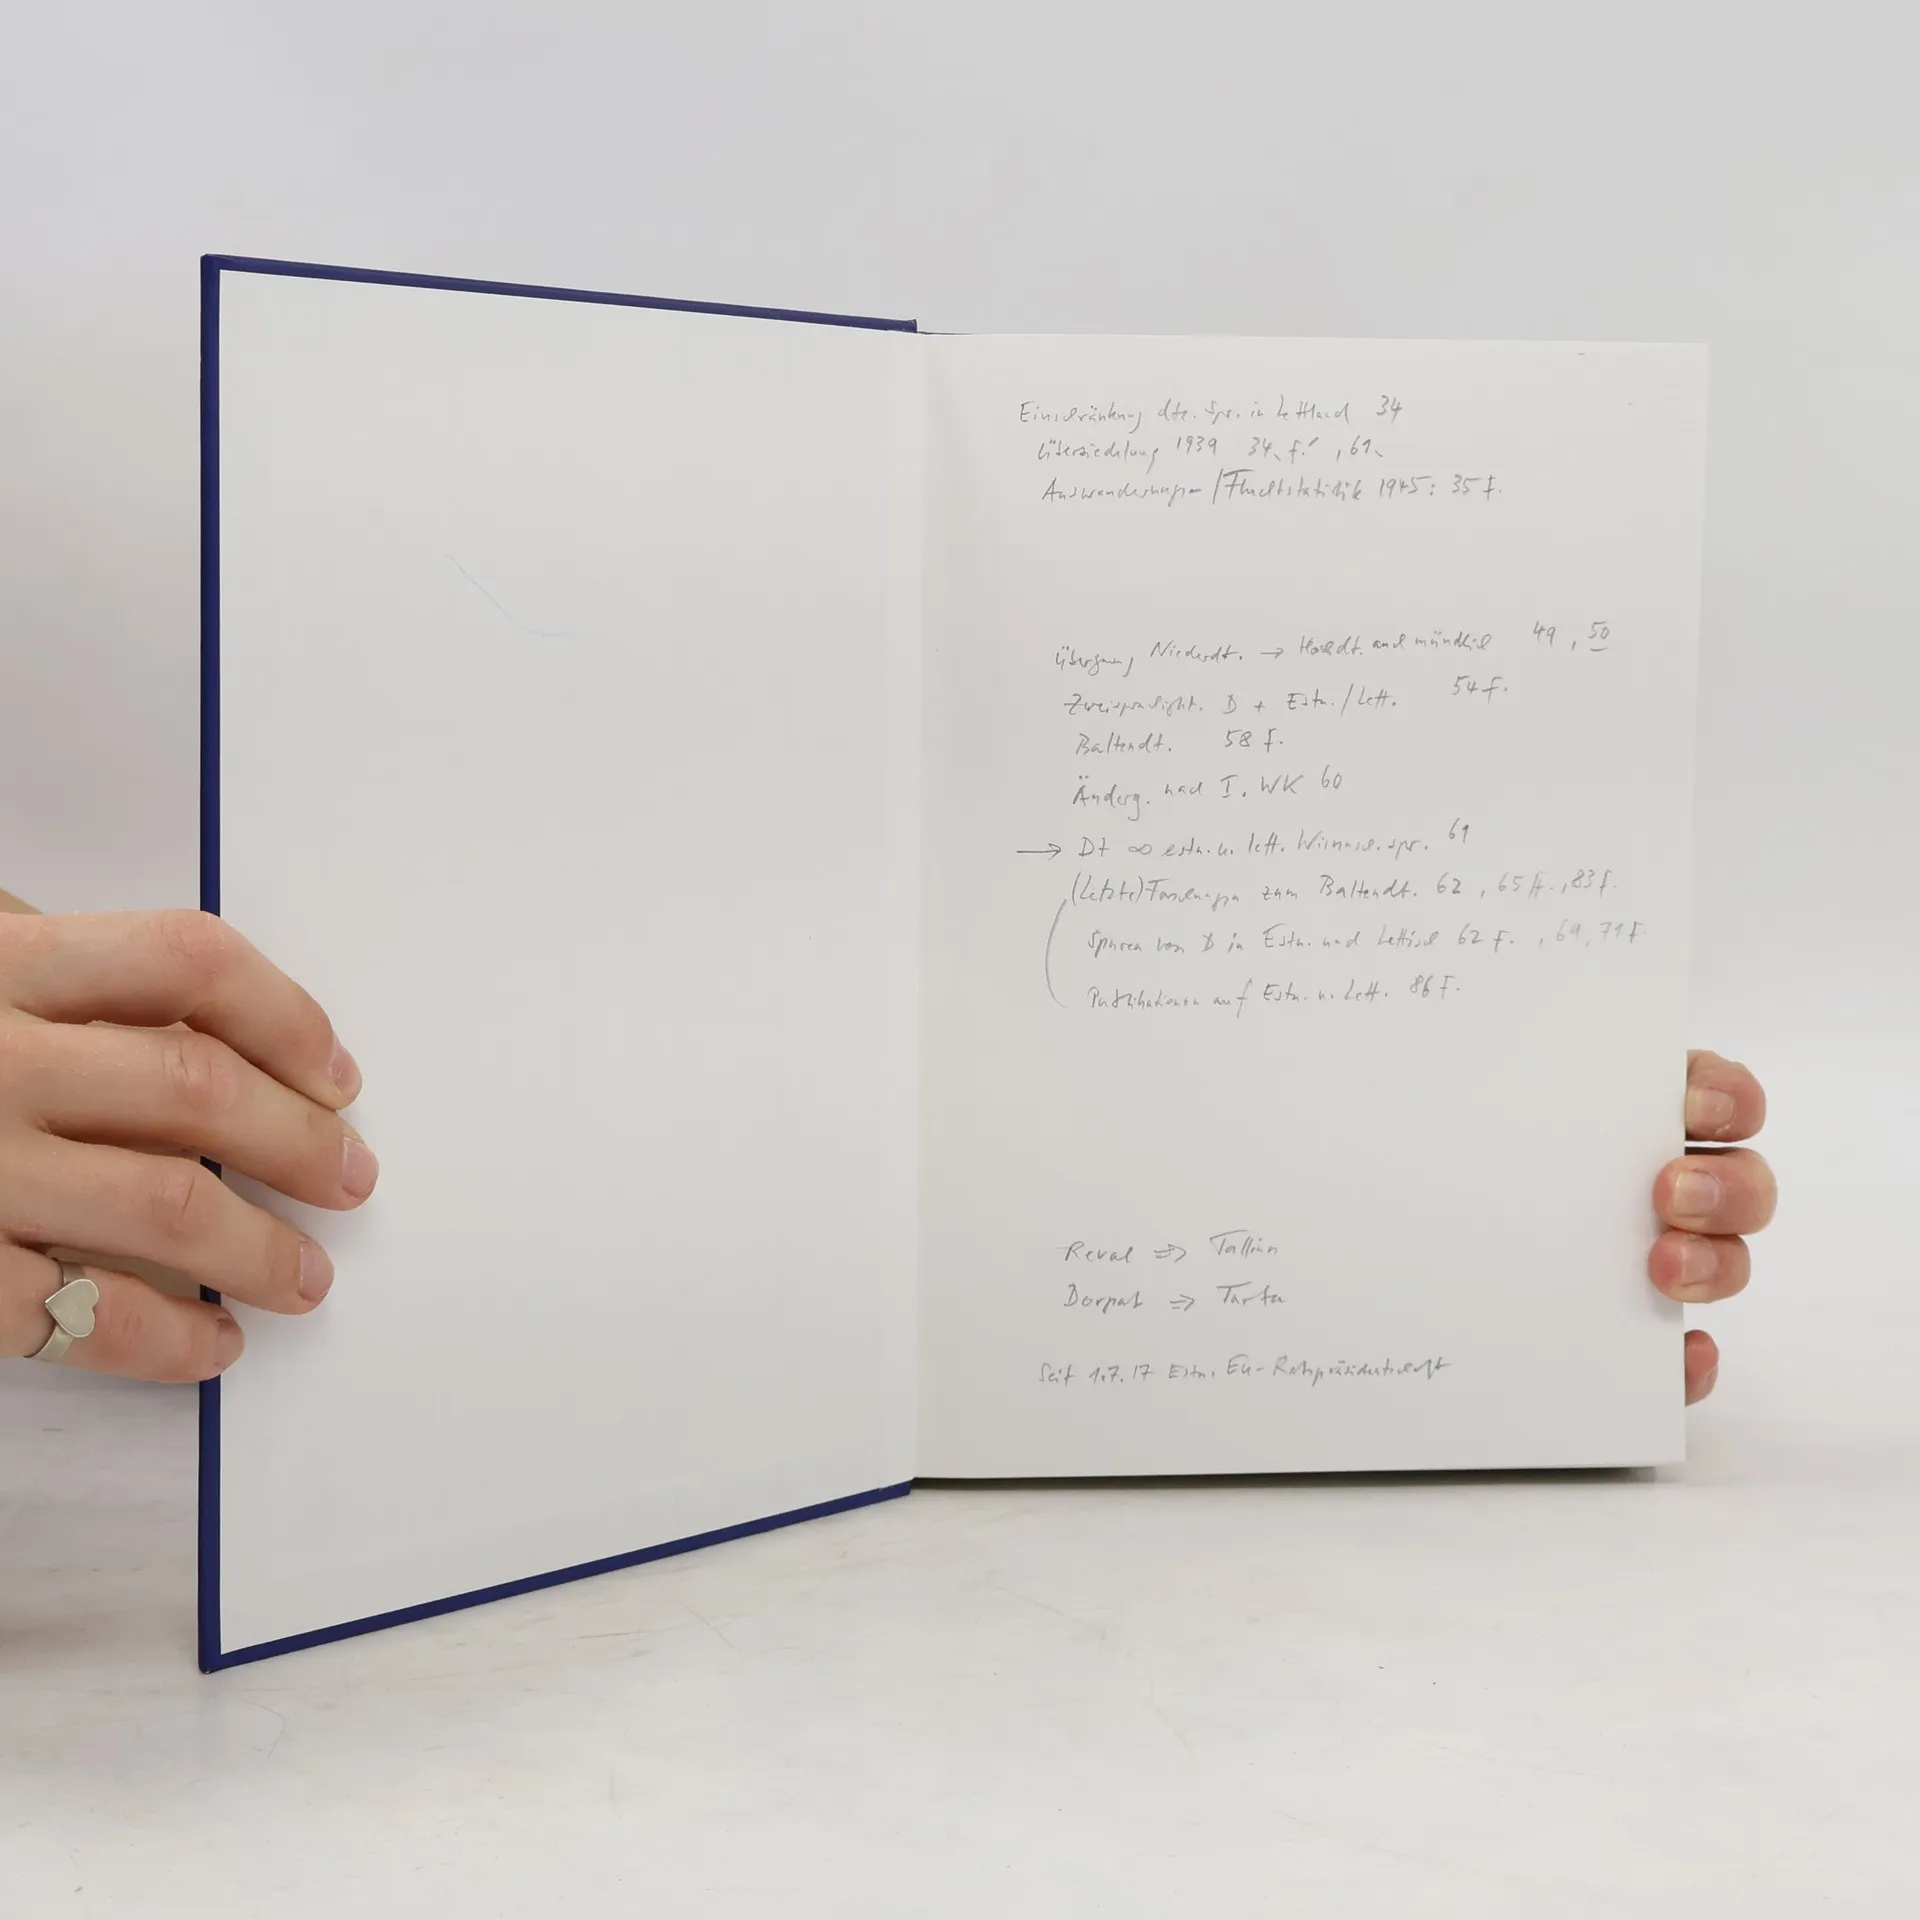 Einschränkung dte. Spr. in Lettland 34
Übersiedlung 1939 34, f.! , 61,
Auswanderungen / Fluchtstatistik 1945: 35 f.
Übergang Niederdt. → Hochdt. auch mündlich 49 , 50
Zweisprachigkt. D + Estn. / Lett. 54 f.
Baltendt. 58 f.
Änderg. nach I. WK 60
→ Dt ∞ estn. u. lett. Wissensch.spr. 61
(Letzte) Forschungen zum Baltendt. 62 , 65 ff. , 83 f.
Spuren von D in Estn. und Lettisch 62 f. , 69, 71 f.
Publikationen auf Estn. u. Lett. 86 f.
Reval ⇒ Tallinn
Dorpat ⇒ Tartu
Seit 1.7.17 Estn. EU-Ratspräsidentschaft